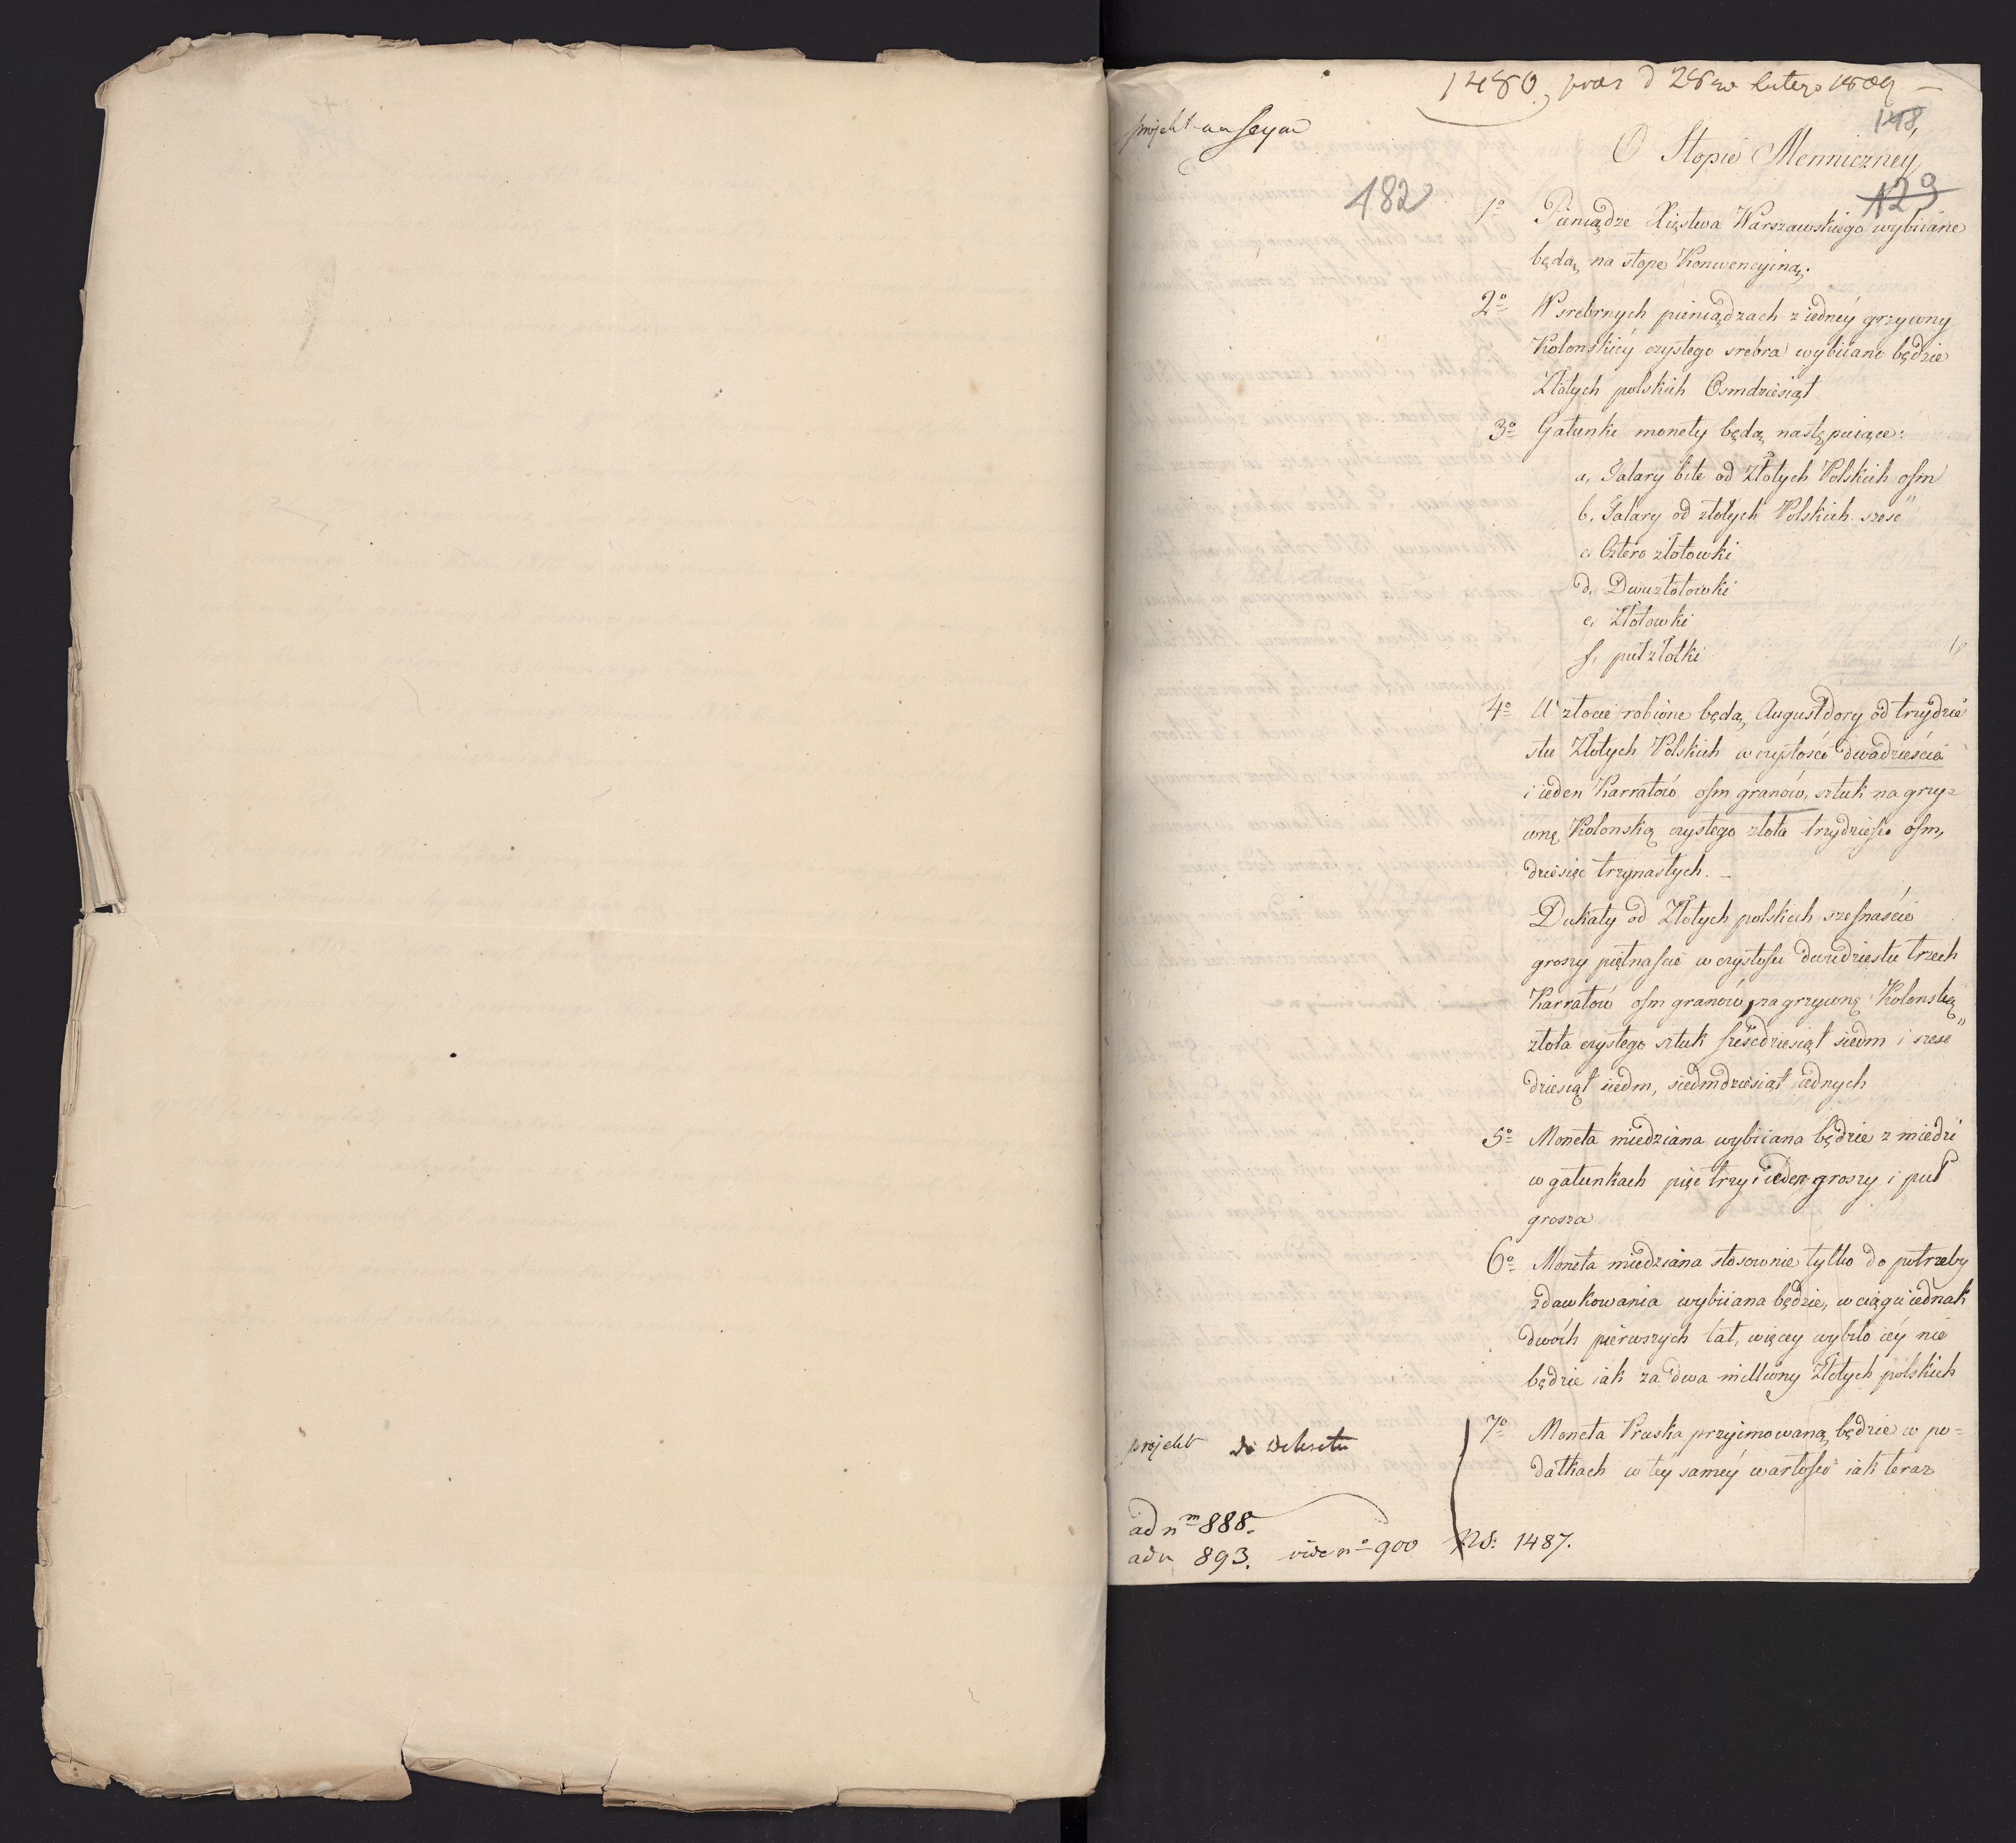 1480, prez d 28 go lutego 1809 —
148
projekt na Seym
O Stopie Menniczney
129
182
1º Pieniądze Xięstwa Warszawskiego wybiiane
będą na stopę Konwencyiną.
2º W srebrnych pieniądzach z iedney grzywny
Kolonskiey czystego srebra wybiiano będzie
Złotych polskich Osmdziesiąt
3º Gatunki monety będą następuiące:
a, Talary bite od Złotych Polskich osm
b, Talary od złotych Polskich sześć
c, Cztero złotowki
d, Dwuzłotowki
e, Złotowki
f, pułzłotki
4º W złocie robione będą Augustdory od trzydzie
stu Złotych Polskich w czystości dwadzieścia
i ieden Karratów osm granów, sztuk na grzy=
wnę Kolonską czystego złota trzydzieści osm,
dziesięć trzynastych. —
Dukaty od Złotych polskich szesnaście
groszy piętnaście w czystości dwudziestu trzech
Karratów osm granów, na grzywnę Kolonską
złota czystego sztuk sześćdziesiąt siedm i sześć
dziesiąt siedm, siedmdziesiąt iednych
5º Moneta miedziana wybiiana będzie z miedzi
w gatunkach pięć trzy i ieden groszy i puł
grosza
6º Moneta miedziana stosownie tylko do potrzeby
zdawkowania wybiiana będzie, w ciągu iednak
dwóch pierwszych lat, więcey wybito iey nie
będzie iak za dwa milliony Złotych polskich
projekt do Dekretu
7º Moneta Pruska przyimowaną będzie w po=
datkach w tey samey wartości iak teraz
ad nm 888.
ad n 893. vide nº 900 NS: 1487.